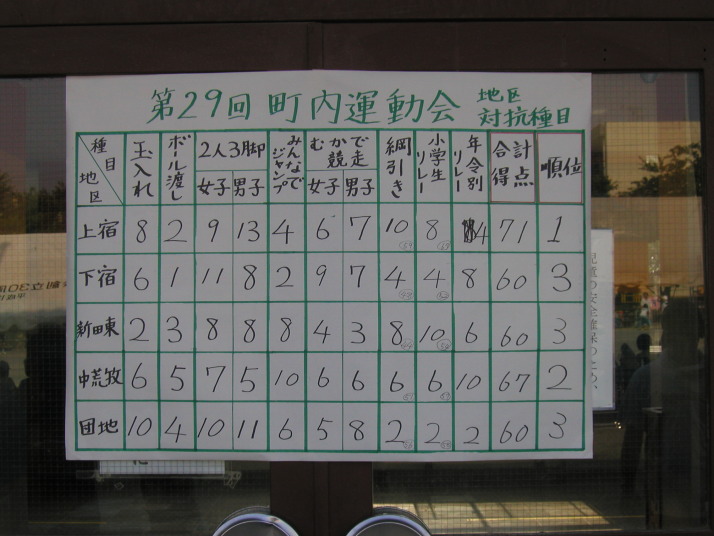 第29回町内運動会 地区対抗種目
種目 地区 玉入れ ボール渡し 2人3脚 女子 男子 みんなでジャンプ むかで競走 女子 男子 綱引き 小学生リレー 年令別リレー 合計得点 順位
上宿 8 2 9 13 4 6 7 10 8 4 71 1
下宿 6 1 11 8 2 9 7 4 4 8 60 3
新田東 2 3 8 8 8 4 3 8 10 6 60 3
中荒牧 6 5 7 5 10 6 6 6 6 10 67 2
団地 10 4 10 11 6 5 8 2 2 2 60 3
児童の安全確保のため、